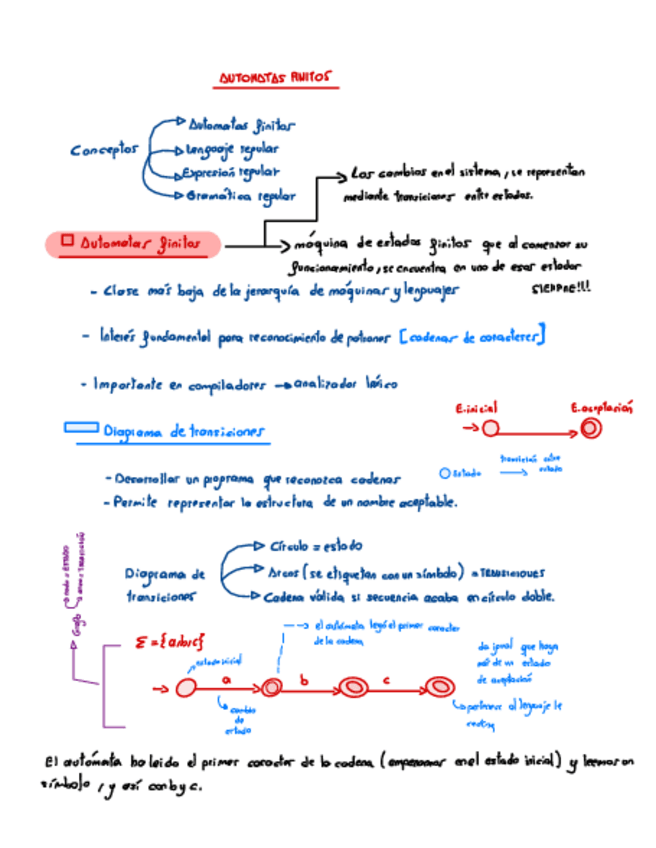 AUTOMATAS FINITOS
Conceptos
Automatas finitos
Lenguaje regular
Expresión regular
Gramática regular
Los cambios en el sistema, se representan
mediante transiciones entre estados.
Automatas finitos
máquina de estados finitos que al comenzar su
funcionamiento, se encuentra en uno de esos estados
SIEMPRE!!!
- Clase más baja de la jerarquía de máquinas y lenguajes
- Interés fundamental para reconocimiento de patrones [cadenas de caracteres]
- Importante en compiladores → analizador léxico
E.inicial
E.aceptación
Diagrama de transiciones
Estado
transición entre
estados
- Desarrollar un programa que reconozca cadenas
- Permite representar la estructura de un nombre aceptable.
Diagrama de
transiciones
Círculo = estado
Arcos (se etiquetan con un símbolo) = TRANSICIONES
Cadena válida si secuencia acaba en círculo doble.
Grafo
nodo = ESTADO
arco = TRANSICIÓN
Σ = {a,b,c}
estado inicial
el autómata leyó el primer caracter
de la cadena
da igual que haya
más de un estado
de aceptación
a
b
c
cambio
de
estado
pertenece al lenguaje la
El autómata ha leido el primer caracter de la cadena (empezamos en el estado inicial) y leemos un
símbolo, y así con b y c.